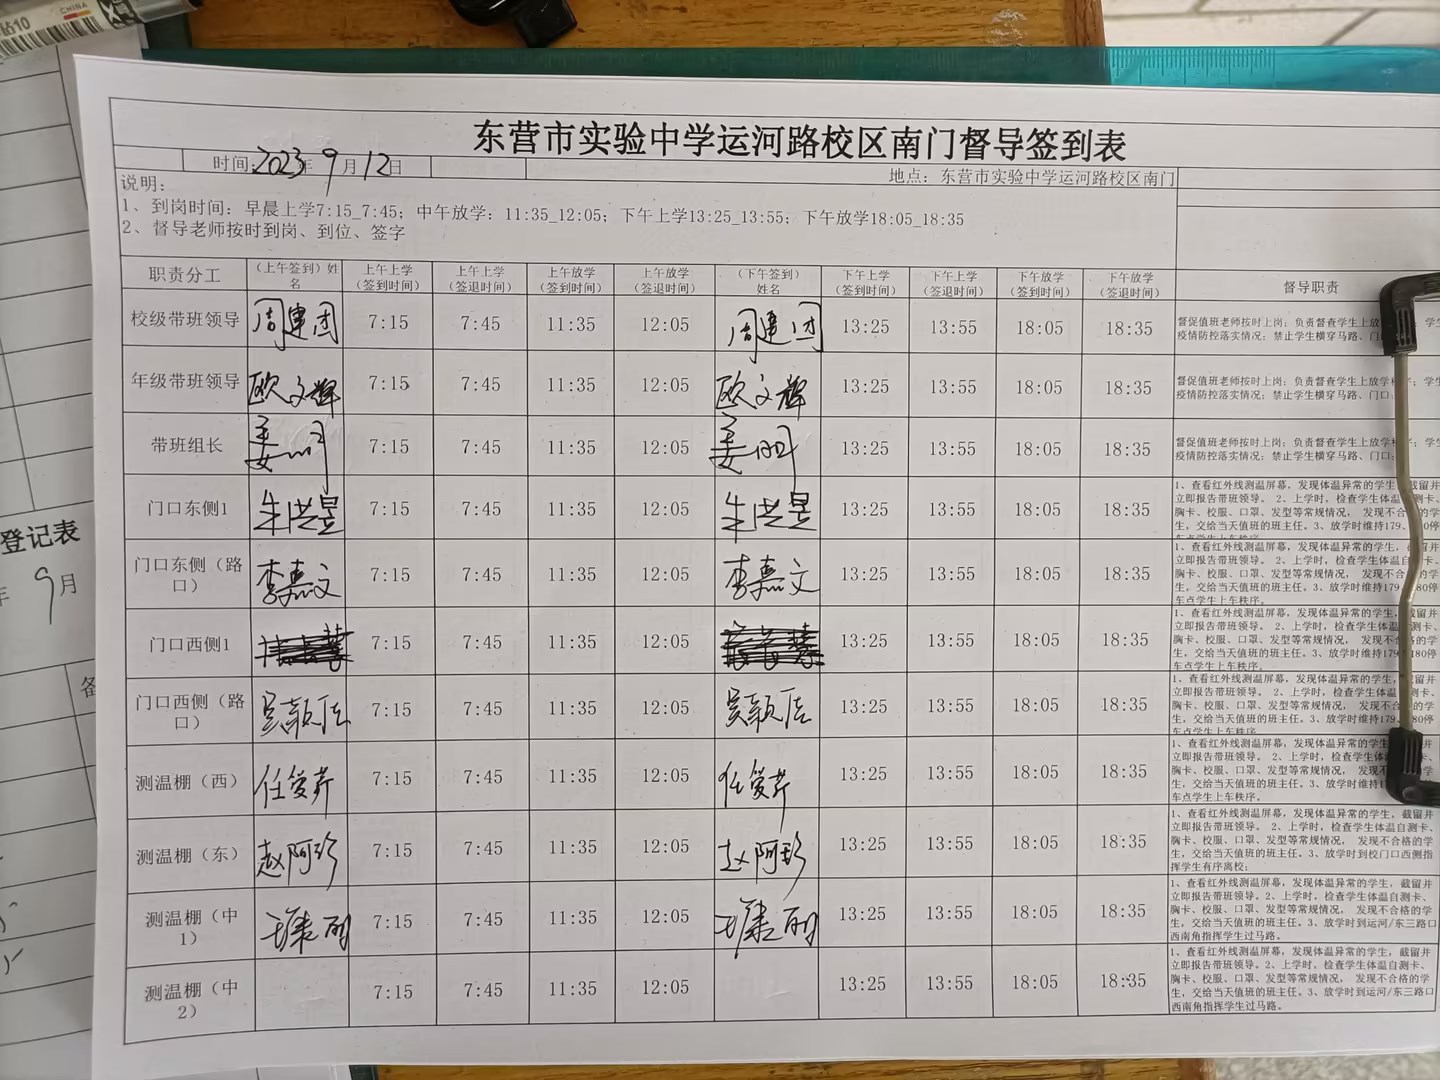 CHINA
610
东营市实验中学运河路校区南门督导签到表
时间:2023年9月12日
地点：东营市实验中学运河路校区南门
说明：
1、到岗时间：早晨上学7:15_7:45；中午放学：11:35_12:05；下午上学13:25_13:55；下午放学18:05_18:35
2、督导老师按时到岗、到位、签字
职责分工 （上午签到）姓名 上午上学（签到时间） 上午上学（签退时间） 上午放学（签到时间） 上午放学（签退时间） （下午签到）姓名 下午上学（签到时间） 下午上学（签退时间） 下午放学（签到时间） 下午放学（签退时间） 督导职责
校级带班领导 周建团 7:15 7:45 11:35 12:05 周建团 13:25 13:55 18:05 18:35
督促值班老师按时上岗；负责督查学生上放 学生
疫情防控落实情况；禁止学生横穿马路、门口
年级带班领导 欧文辉 7:15 7:45 11:35 12:05 欧文辉 13:25 13:55 18:05 18:35
督促值班老师按时上岗；负责督查学生上放学 学生
疫情防控落实情况；禁止学生横穿马路、门口
带班组长 姜明 7:15 7:45 11:35 12:05 姜明 13:25 13:55 18:05 18:35
督促值班老师按时上岗；负责督查学生上放学 学生
疫情防控落实情况；禁止学生横穿马路、门口
门口东侧1 朱洪昱 7:15 7:45 11:35 12:05 朱洪昱 13:25 13:55 18:05 18:35
1、查看红外线测温屏幕，发现体温异常的学生，截留并
立即报告带班领导。 2、上学时，检查学生体温自测卡、
胸卡、校服、口罩、发型等常规情况， 发现不合格的学
生，交给当天值班的班主任。3、放学时维持179、180停
车点学生上车秩序。
门口东侧（路口） 李嘉文 7:15 7:45 11:35 12:05 李嘉文 13:25 13:55 18:05 18:35
1、查看红外线测温屏幕，发现体温异常的学生，截留并
立即报告带班领导。 2、上学时，检查学生体温自测卡、
胸卡、校服、口罩、发型等常规情况， 发现不合格的学
生，交给当天值班的班主任。3、放学时维持179、180停
车点学生上车秩序。
门口西侧1 7:15 7:45 11:35 12:05 13:25 13:55 18:05 18:35
1、查看红外线测温屏幕，发现体温异常的学生，截留并
立即报告带班领导。 2、上学时，检查学生体温自测卡、
胸卡、校服、口罩、发型等常规情况， 发现不合格的学
生，交给当天值班的班主任。3、放学时维持179、180停
车点学生上车秩序。
门口西侧（路口） 吴颖佳 7:15 7:45 11:35 12:05 吴颖佳 13:25 13:55 18:05 18:35
1、查看红外线测温屏幕，发现体温异常的学生，截留并
立即报告带班领导。 2、上学时，检查学生体温自测卡、
胸卡、校服、口罩、发型等常规情况， 发现不合格的学
生，交给当天值班的班主任。3、放学时维持179、180停
车点学生上车秩序。
测温棚（西） 任爱芹 7:15 7:45 11:35 12:05 任爱芹 13:25 13:55 18:05 18:35
1、查看红外线测温屏幕，发现体温异常的学生，截留并
立即报告带班领导。 2、上学时，检查学生体温自测卡、
胸卡、校服、口罩、发型等常规情况， 发现不合格的学
生，交给当天值班的班主任。3、放学时维持
车点学生上车秩序。
测温棚（东） 赵阿珍 7:15 7:45 11:35 12:05 赵阿珍 13:25 13:55 18:05 18:35
1、查看红外线测温屏幕，发现体温异常的学生，截留并
立即报告带班领导。 2、上学时，检查学生体温自测卡、
胸卡、校服、口罩、发型等常规情况， 发现不合格的学
生，交给当天值班的班主任。3、放学时到校门口西侧指
挥学生有序离校；
测温棚（中1） 7:15 7:45 11:35 12:05 13:25 13:55 18:05 18:35
1、查看红外线测温屏幕，发现体温异常的学生，截留并
立即报告带班领导。2、上学时，检查学生体温自测卡、
胸卡、校服、口罩、发型等常规情况， 发现不合格的学
生，交给当天值班的班主任。3、放学时到运河/东三路口
西南角指挥学生过马路。
测温棚（中2） 7:15 7:45 11:35 12:05 13:25 13:55 18:05 18:35
1、查看红外线测温屏幕，发现体温异常的学生，截留并
立即报告带班领导。2、上学时，检查学生体温自测卡、
胸卡、校服、口罩、发型等常规情况， 发现不合格的学
生，交给当天值班的班主任。3、放学时到运河/东三路口
西南角指挥学生过马路。
登记表
年9月
备